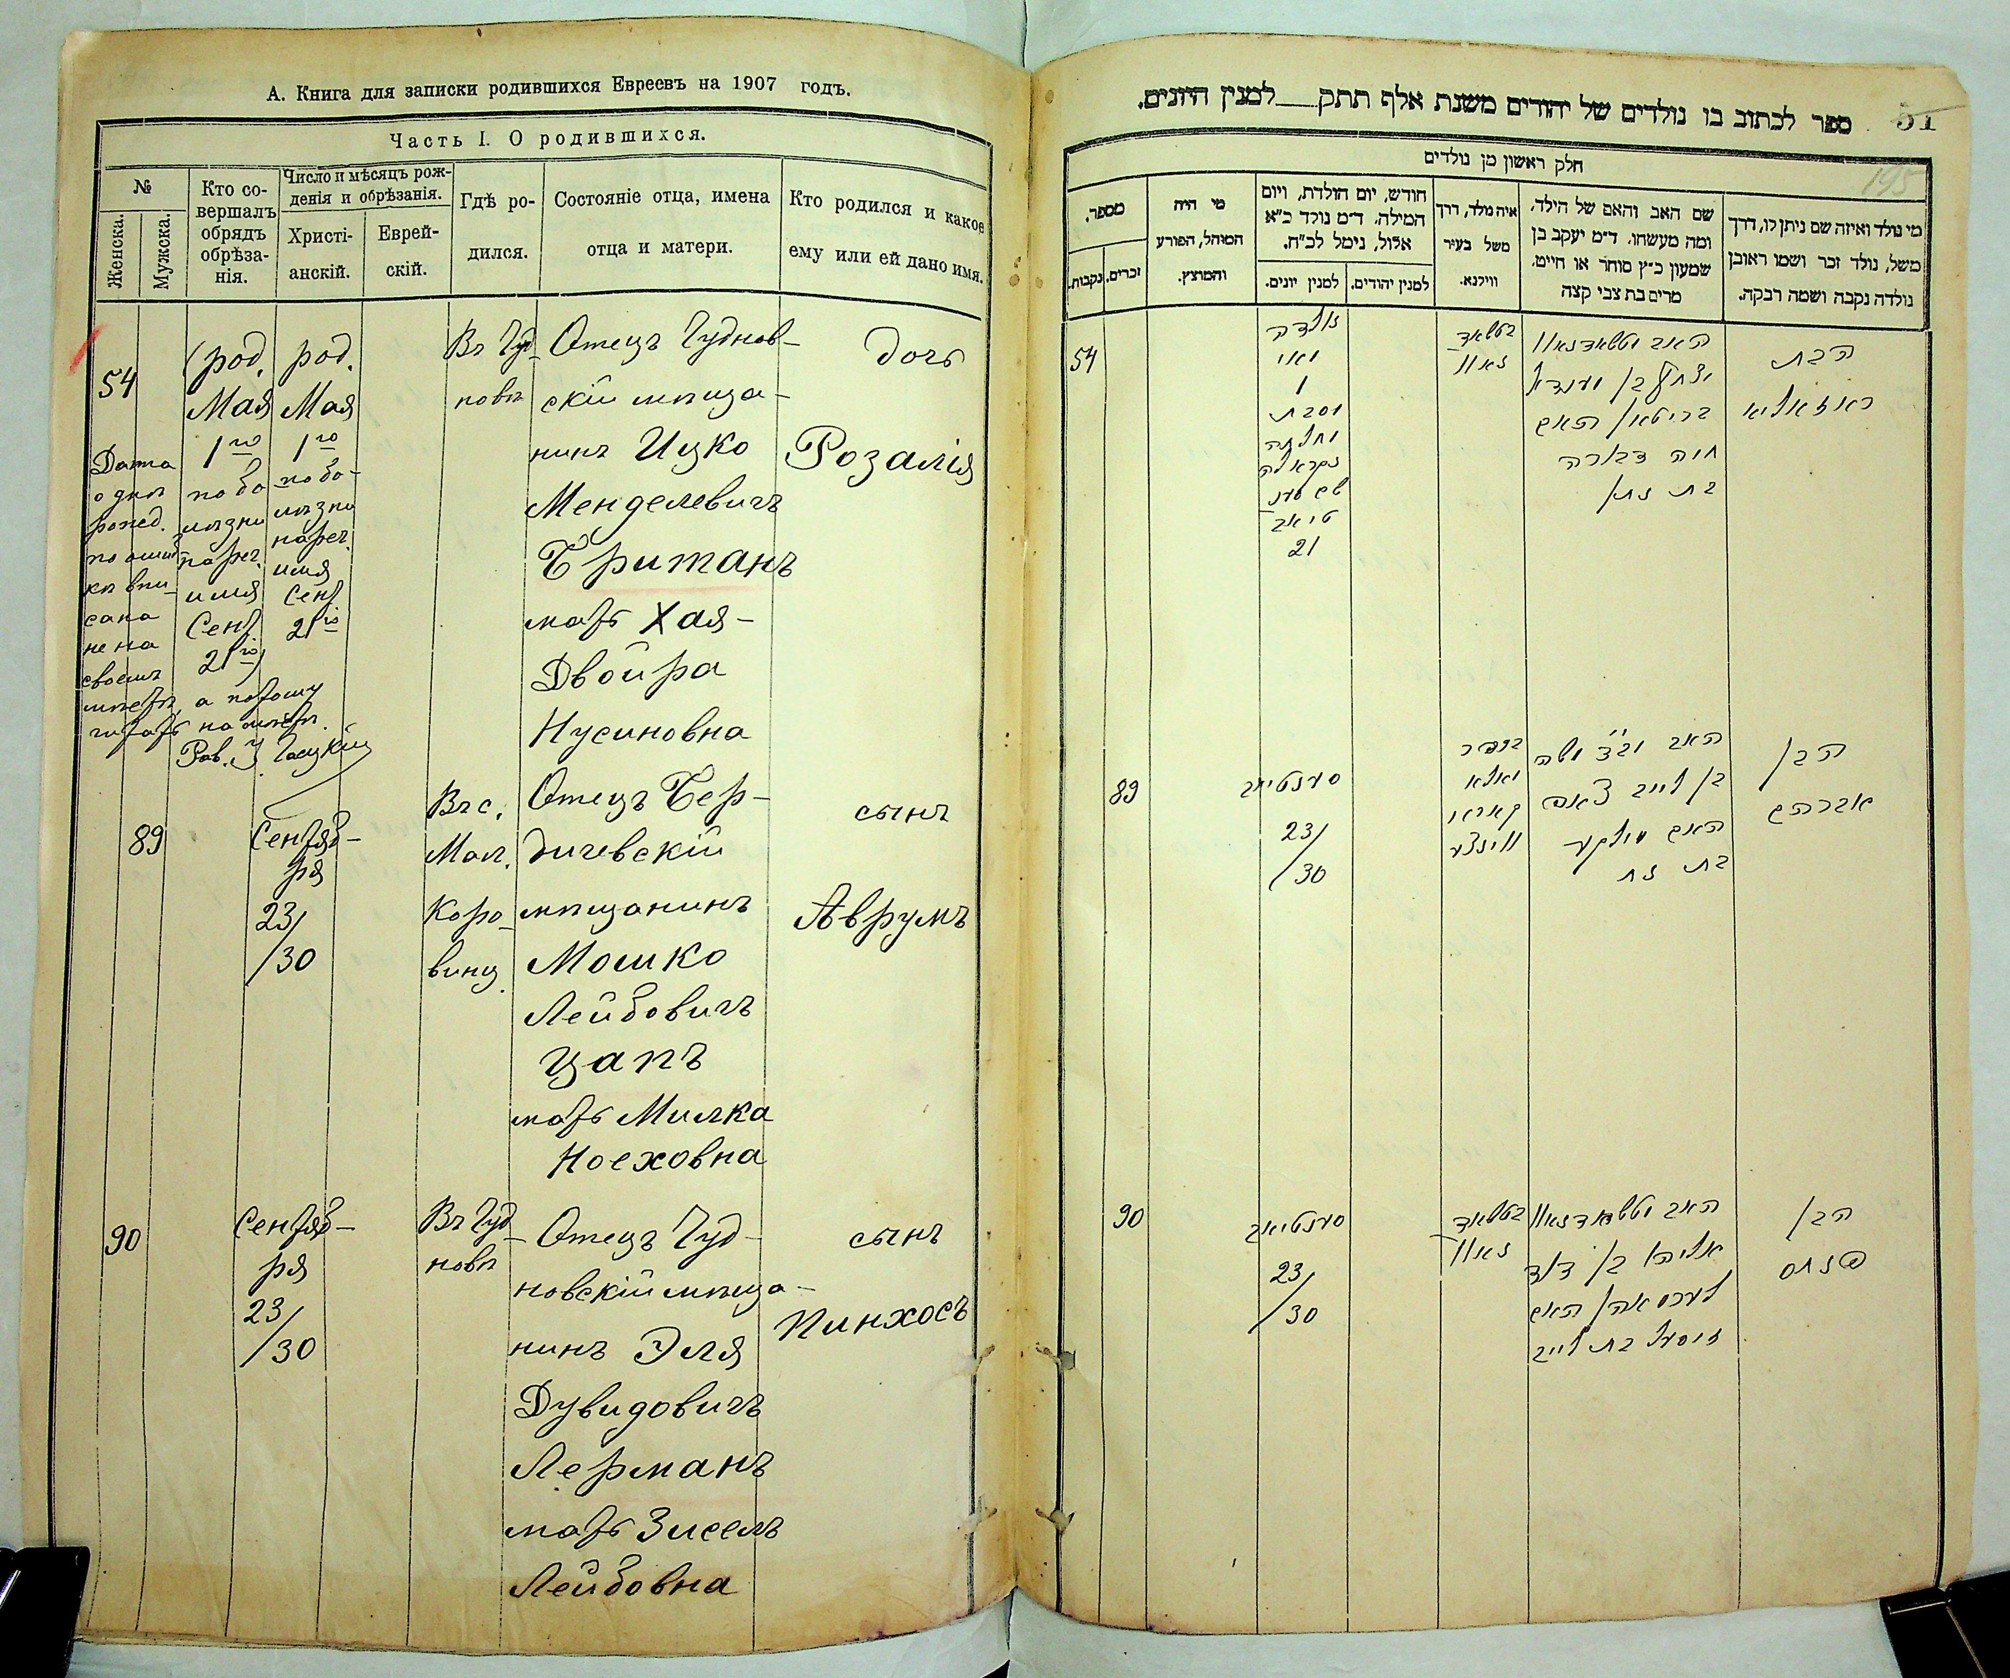 А. Книга для записки родившихся Евреевъ на 1907 годъ.
Часть I. О родившихся.
№
Женска.
Мужска.
Кто со-
вершалъ
обрядъ
обрѣза-
нія.
Число и мѣсяцъ рож-
денія и обрѣзанія.
Христі-
анскій.
Еврей-
скій.
Гдѣ ро-
дился.
Состояніе отца, имена
отца и матери.
Кто родился и какое
ему или ей дано имя.
54
Дата
о дня
рожд.
по ошиб-
кѣ впи-
сана
не на
своемъ
мѣстѣ, а потому
читать на мѣстѣ.
Рав. У.
(род.
Мая
1го
по бо
лѣзни
нареч.
имя
Сент.
21го)
род.
Мая
1го
по бо-
лѣзни
нареч.
имя
Сент.
21го
Въ Чуд-
новѣ
Отецъ Чуднов-
скій мѣща-
нинъ Ицко
Менделевичъ
Бритaнъ
мать Хая-
Двойра
Нусиновна
дочь
Розалія
89
Сентяб-
ря
23/
/30
Въ с.
Мал.
Коро-
винц.
Отецъ Бер-
дичевскій
мѣщанинъ
Мошко
Лейбовичъ
Цапъ
мать Милка
Ноеховна
сынъ
Аврумъ
90
Сентяб-
ря
23/
/30
Въ Чуд-
новѣ
Отецъ Чуд-
новскій мѣща-
нинъ Эля
Дувидовичъ
Лерманъ
мать Зиселъ
Лейбовна
сынъ
Пинхосъ
ספר לכתוב בו נולדים של יהודים משנת אלף תתק למנין היונים.
51
195
חלק ראשון מן נולדים
מספר.
נקבות.
זכרים.
מי היה
המוהל, הפורע
והמוצץ.
חודש, יום הולדת, ויום
המילה. ד״מ נולד כ״א
אלול, נימל לכ״ח.
למנין יונים.
למנין יהודים.
איה נולד, דרך
משל בעיר
ווילנא.
שם האב והאם של הילד,
ומה מעשהו. ד״מ יעקב בן
שמעון כ״ץ סוחר או חייט,
מרים בת צבי קצה
מי נולד ואיזה שם ניתן לו, דרך
משל, נולד זכר ושמו ראובן
נולדה נקבה ושמה רבקה.
54
נולדה
מאי
1
וסבת
21
האם
חיה דבורה
הבת
ראזאליא
89
סענטיאב
23/
/30
בן לייב צאפ
האם מילקע
בת נח
הבן
אברהם
90
סענטיאב
23/
/30
אליהו בן דוד
לערמאן האם
זיסעל בת לייב
הבן
פנחס